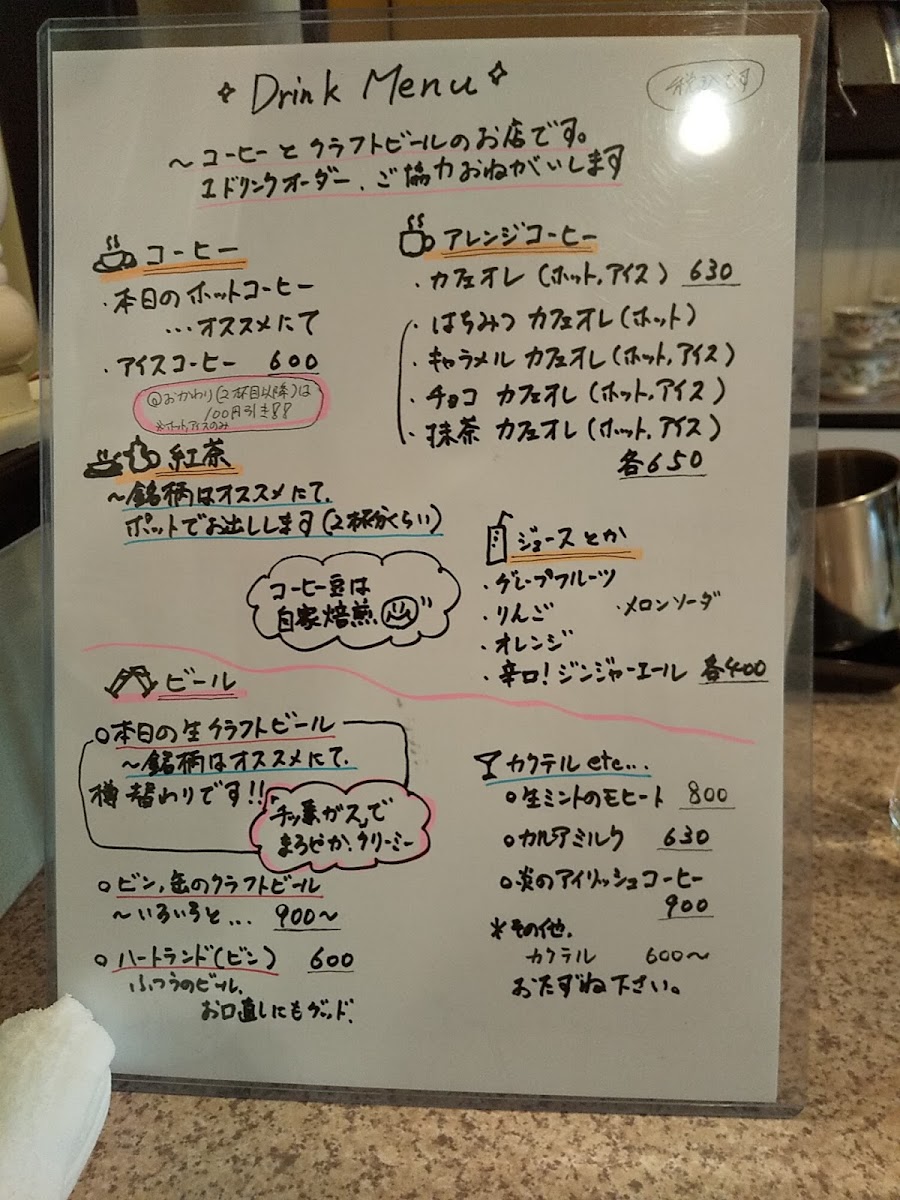 Drink Menu
税込です
～コーヒーとクラフトビールのお店です。
1ドリンクオーダー、ご協力おねがいします
コーヒー
・本日のホットコーヒー
…オススメにて
・アイスコーヒー 600
おかわり(2杯目以降)は
100円引き!!
※ホット,アイスのみ
紅茶
～銘柄はオススメにて、
ポットでお出しします(2杯分くらい)
コーヒー豆は
自家焙煎
アレンジコーヒー
・カフェオレ(ホット,アイス) 630
・はちみつ カフェオレ(ホット)
・キャラメル カフェオレ(ホット,アイス)
・チョコ カフェオレ(ホット,アイス)
・抹茶 カフェオレ(ホット,アイス)
各650
ジュースとか
・グレープフルーツ
・りんご ・メロンソーダ
・オレンジ
・辛口!ジンジャーエール 各400
ビール
○本日の生クラフトビール
～銘柄はオススメにて、
樽替わりです!!
「チッ素ガス」で
まろやか、クリーミー
○ビン,缶のクラフトビール
～いろいろと… 900～
○ハートランド(ビン) 600
ふつうのビール、
お口直しにもグッド、
カクテル etc...
○生ミントのモヒート 800
○カルアミルク 630
○炎のアイリッシュコーヒー
900
※その他、
カクテル 600～
おたずね下さい。